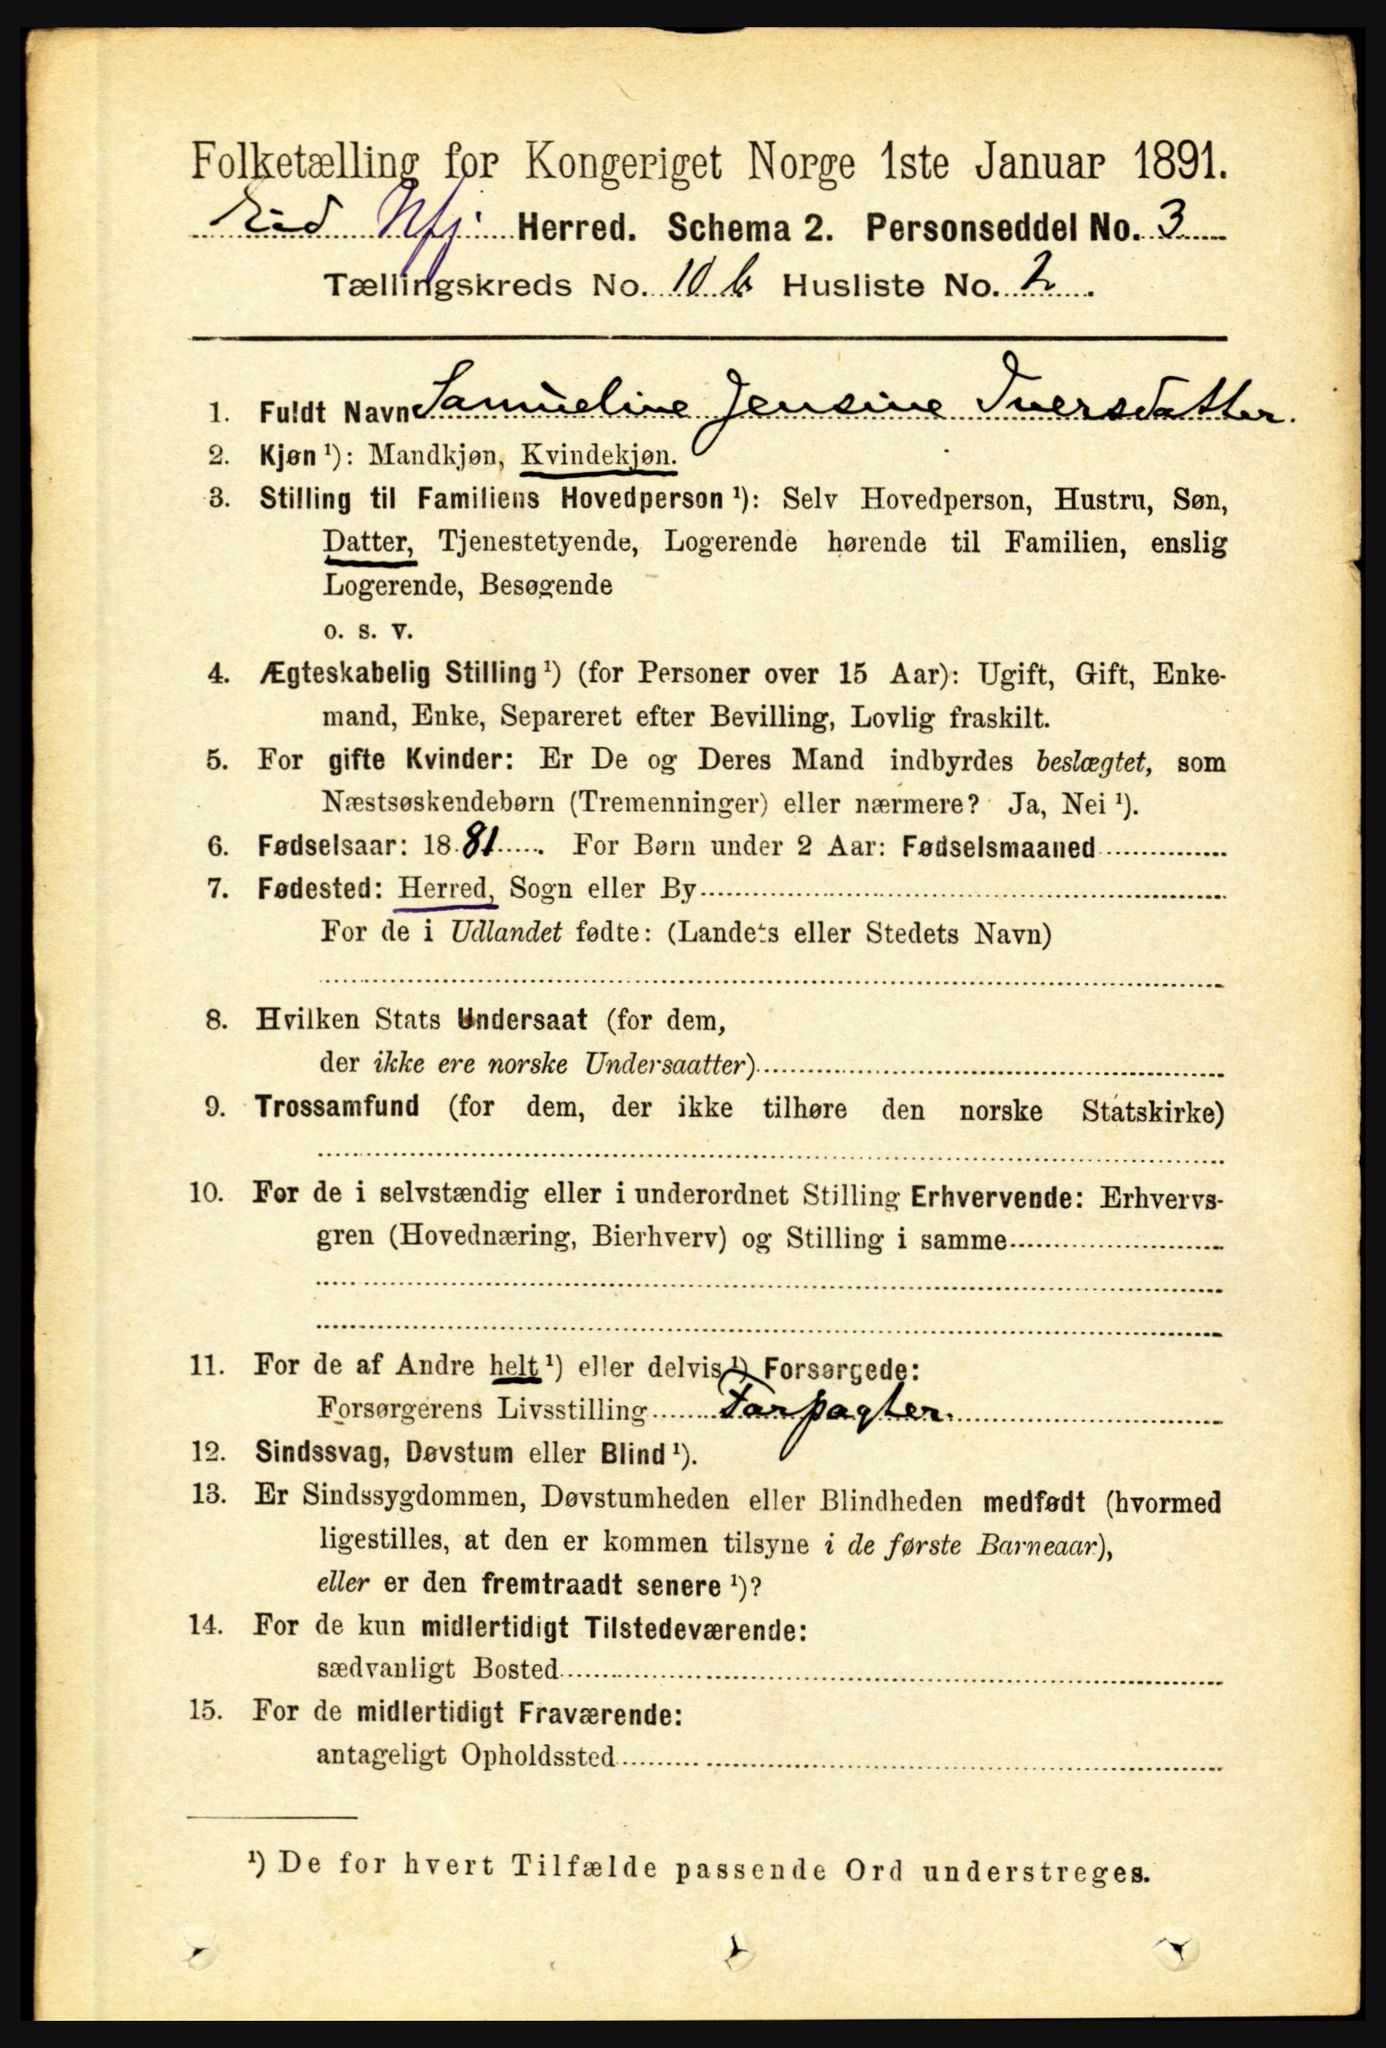 Folketælling for Kongeriget Norge 1ste Januar 1891.
Eid Nfj. Herred. Schema 2. Personseddel No. 3
Tællingskreds No. 10 b Husliste No. 2.
1. Fuldt Navn Samueline Jensine Iversdatter.
2. Kjøn ¹): Mandkjøn, Kvindekjøn.
3. Stilling til Familiens Hovedperson ¹): Selv Hovedperson, Hustru, Søn,
Datter, Tjenestetyende, Logerende hørende til Familien, enslig
Logerende, Besøgende
o. s. v.
4. Ægteskabelig Stilling ¹) (for Personer over 15 Aar): Ugift, Gift, Enke-
mand, Enke, Separeret efter Bevilling, Lovlig fraskilt.
5. For gifte Kvinder: Er De og Deres Mand indbyrdes beslægtet, som
Næstsøskendebørn (Tremenninger) eller nærmere? Ja, Nei ¹).
6. Fødselsaar: 1881. For Børn under 2 Aar: Fødselsmaaned
7. Fødested: Herred, Sogn eller By
For de i Udlandet fødte: (Landets eller Stedets Navn)
8. Hvilken Stats Undersaat (for dem,
der ikke ere norske Undersaatter)
9. Trossamfund (for dem, der ikke tilhøre den norske Statskirke)
10. For de i selvstændig eller i underordnet Stilling Erhvervende: Erhvervs-
gren (Hovednæring, Bierhverv) og Stilling i samme
11. For de af Andre helt ¹) eller delvis ¹) Forsørgede:
Forsørgerens Livsstilling Forpagter.
12. Sindssvag, Døvstum eller Blind ¹).
13. Er Sindssygdommen, Døvstumheden eller Blindheden medfødt (hvormed
ligestilles, at den er kommen tilsyne i de første Barneaar),
eller er den fremtraadt senere ¹)?
14. For de kun midlertidigt Tilstedeværende:
sædvanligt Bosted
15. For de midlertidigt Fraværende:
antageligt Opholdssted
¹) De for hvert Tilfælde passende Ord understreges.